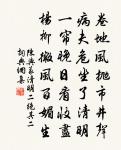 卷地風拋市井聲
病夫危坐了清明
一簾晚日看收盡
楊柳微風百媚生
陳與義清明二絕其二
詞典網集